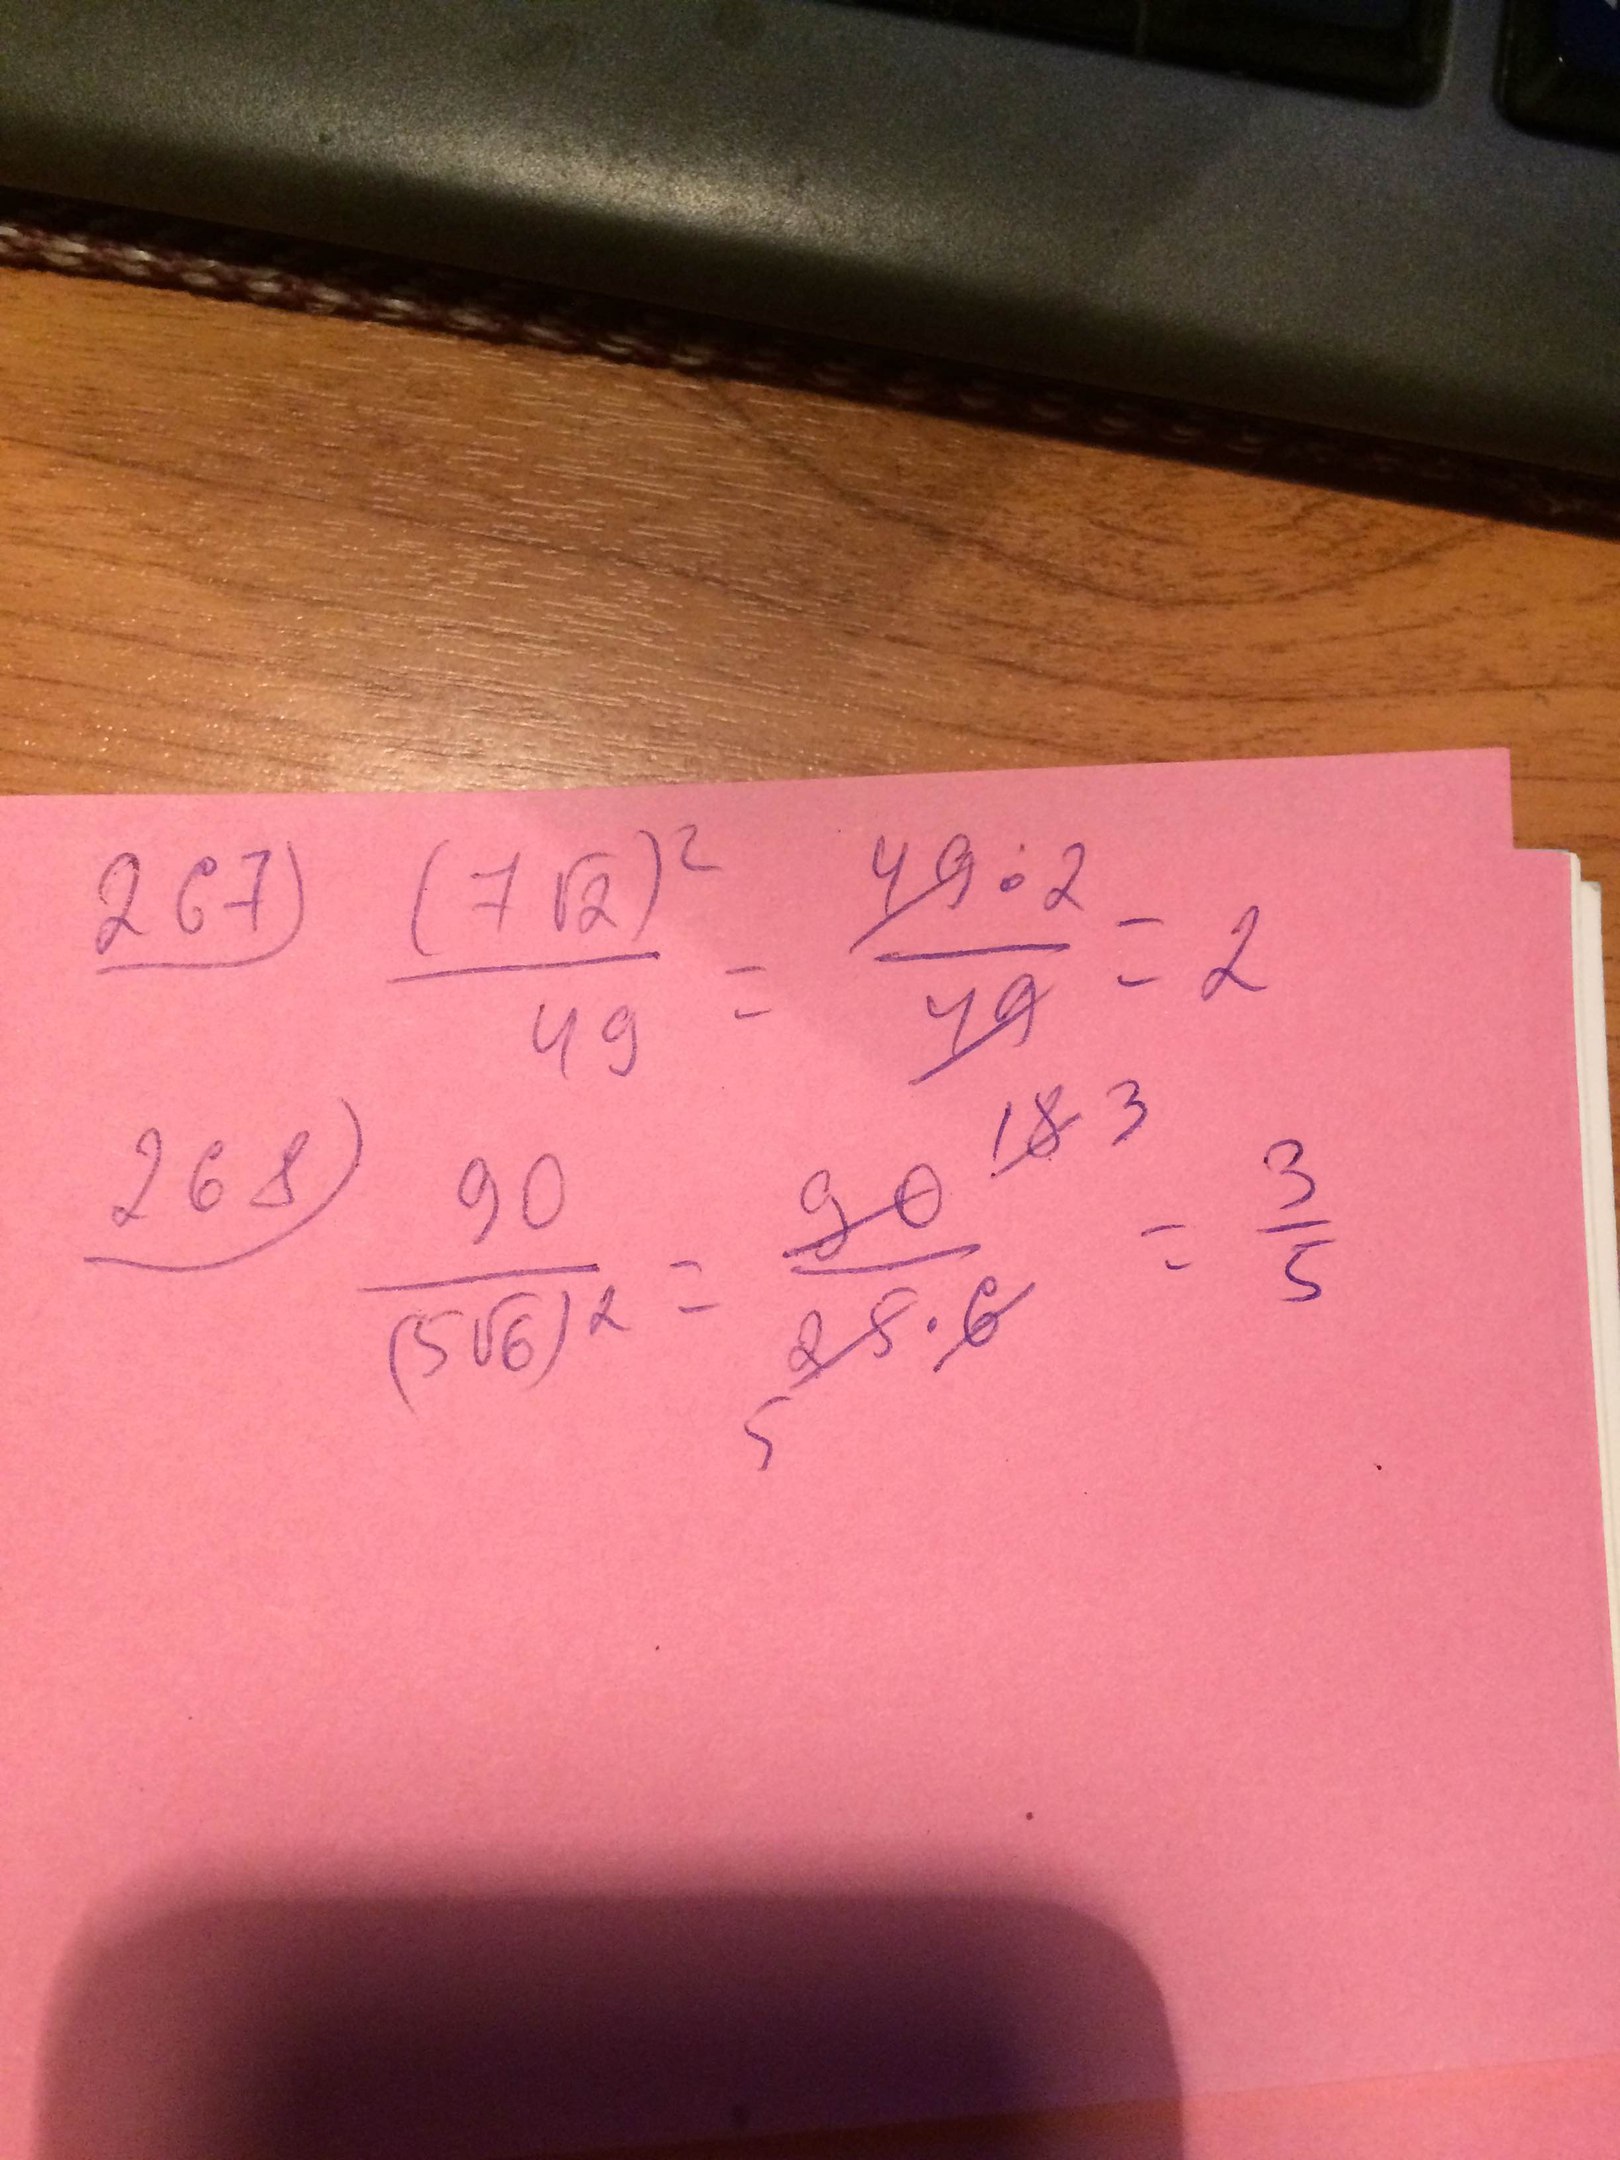 267) (7√2)²/49 = 49·2/49 = 2
268) 90/(5√6)² = 90 18 3/25·6 5 = 3/5